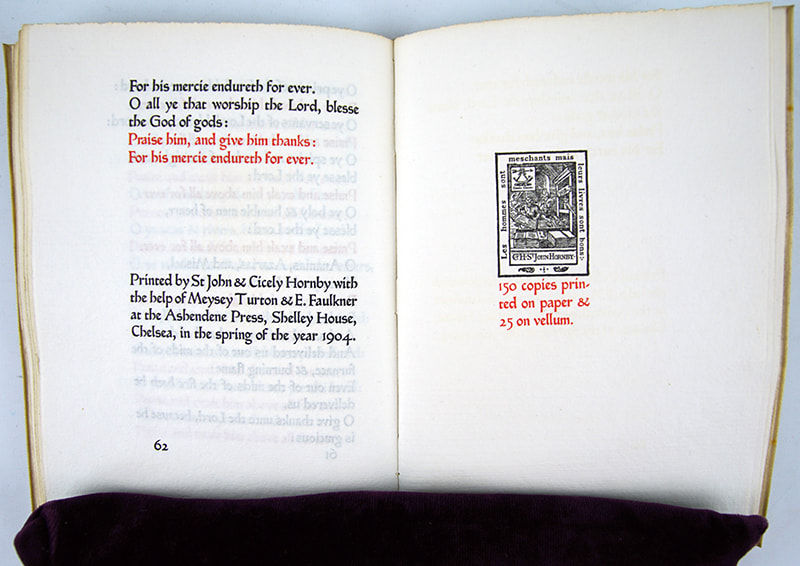 For his mercie endureth for ever.
O all ye that worship the Lord, blesse
the God of gods:
Praise him, and give him thanks:
For his mercie endureth for ever.
Printed by St John & Cicely Hornby with
the help of Meysey Turton & E. Faulkner
at the Ashendene Press, Shelley House,
Chelsea, in the spring of the year 1904.
62
Les hommes sont
meschants mais
leurs livres sont bons
C.H. St. John Hornby
150 copies prin-
ted on paper &
25 on vellum.